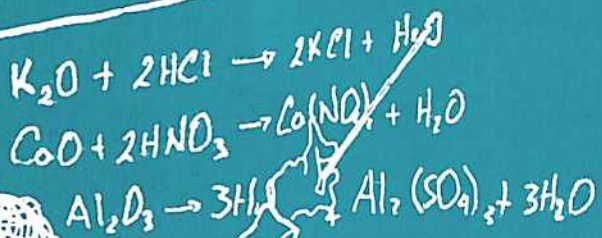 K₂O + 2HCl → 2KCl + H₂O
CaO + 2HNO₃ → Ca(NO₃)₂ + H₂O
Al₂O₃ → 3H₂ Al₂(SO₄)₃ + 3H₂O